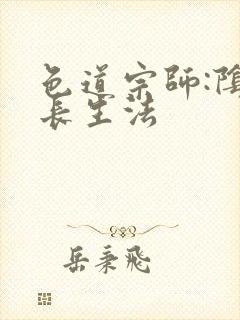 色道宗師:陰
長生法
岳秉飛